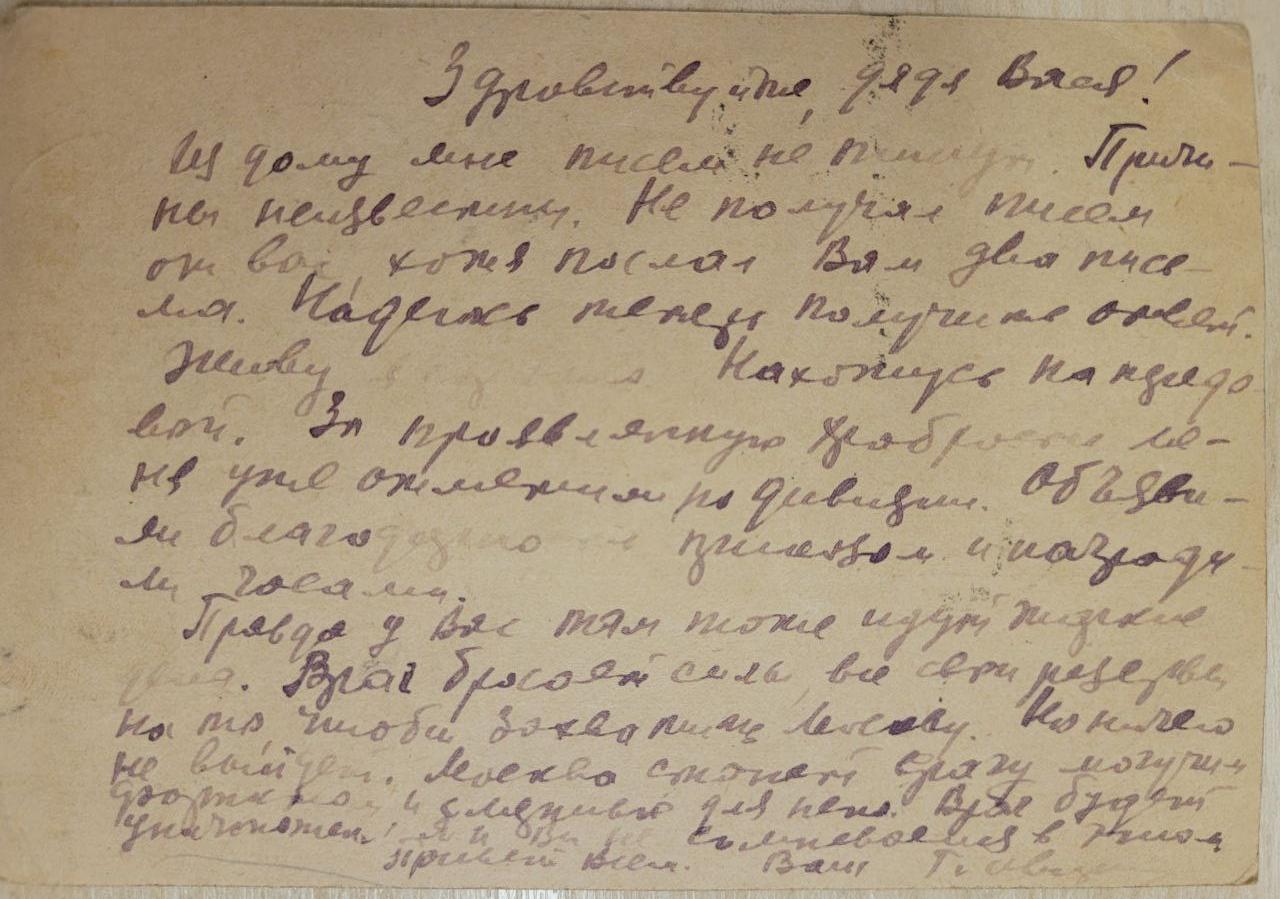 Здравствуйте, дядя Вася!
Из дому мне писем не пишут. Причи-
ны неизвестны. Не получал писем
от вас, хотя послал Вам два пись-
ма. Надеюсь теперь получить ответ.
Живу Нахожусь на передо-
вой. За проявленную храбрость ме-
ня уже отметили по дивизии. Объяви-
ли благодарность приказом и награди-
ли часами.
Правда у Вас там тоже идут жаркие
дела. Враг бросает силы, все свои резервы
на то чтобы захватить Москву. Но ничего
не выйдет. Москва станет врагу могучим
и для него. Враг будет
уничтожен, я и Вы не сомневаемся в этом
Привет всем. Ваш